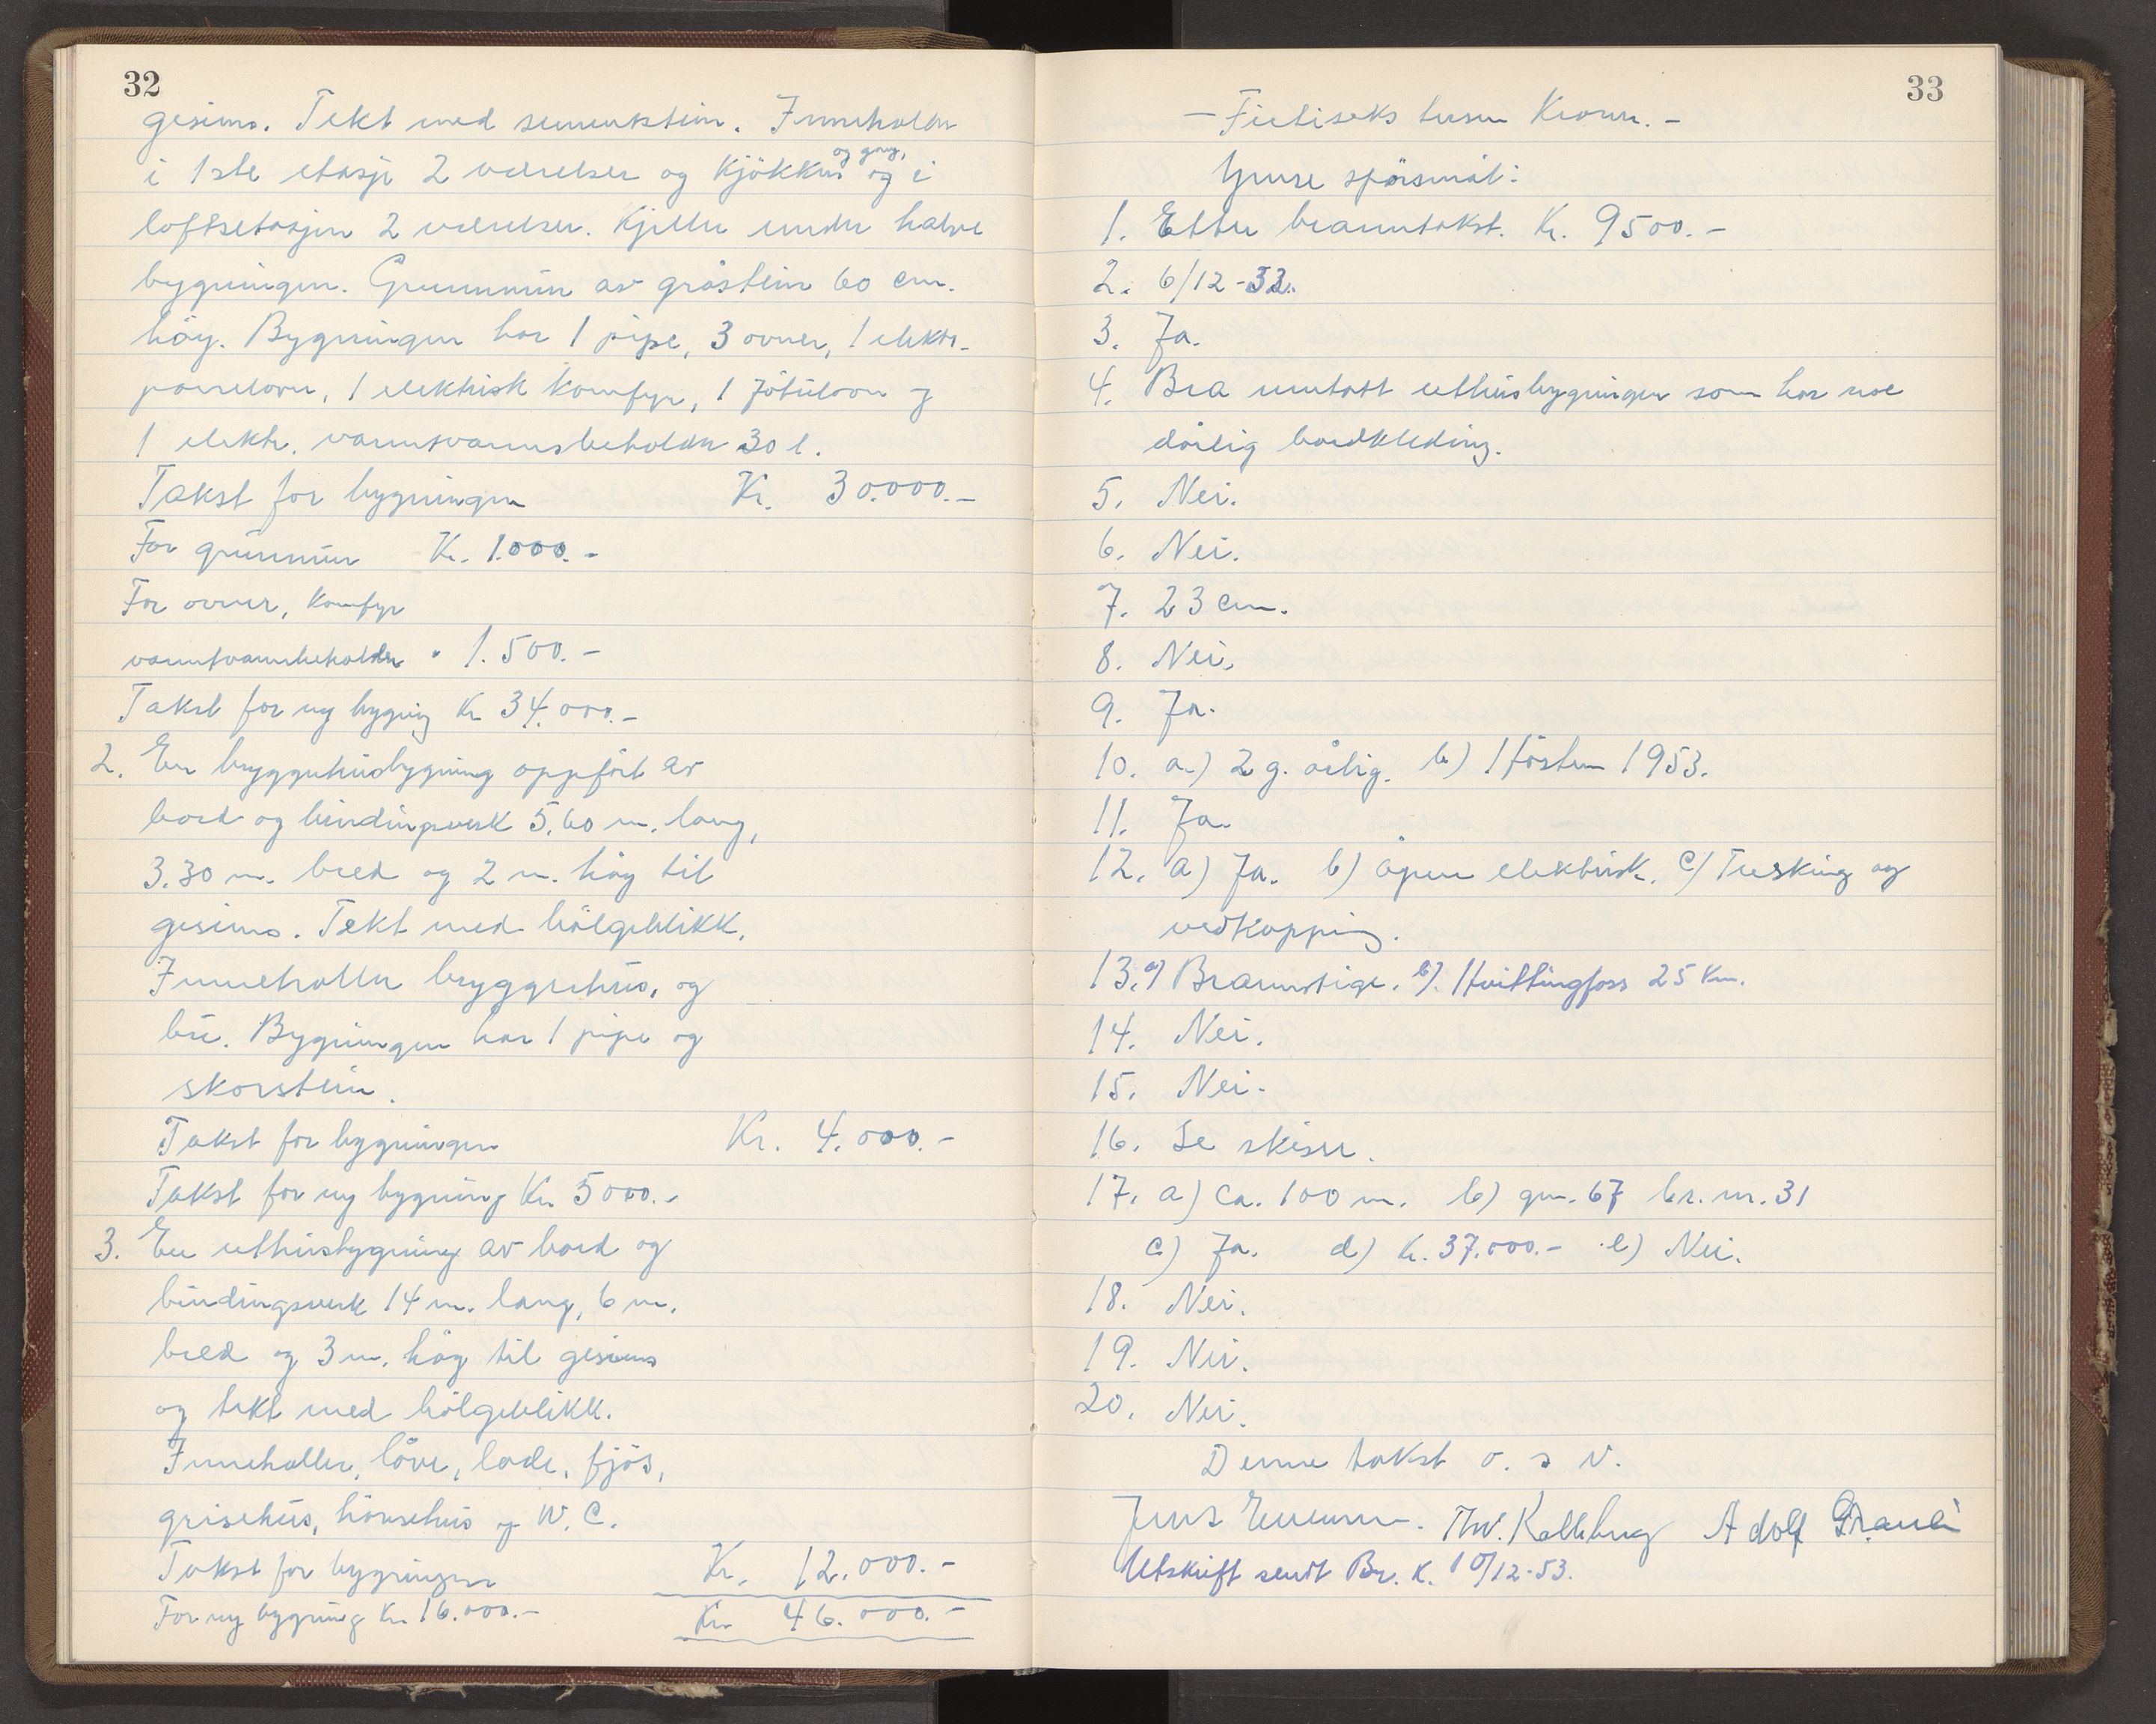 32
gesims. Tekt med sementstein. Inneholder
i 1ste etasje 2 værelser og kjökken og gang, og i
loftsetasjen 2 værelser. Kjeller under halve
bygningen. Grunnmur av gråstein 60 cm.
höy. Bygningen har 1 pipe, 3 ovner, 1 elektr.
panelovn, 1 elektrisk komfyr, 1 Jötulovn og
1 elektr. varmtvannsbeholder 30 l.
Takst for bygningen Kr. 30.000.-
For grunnmur Kr. 1.000.-
For ovner, komfyr
varmtvannbeholder " 1.500.-
Takst for ny bygning Kr 34.000.-
2. En bryggerhusbygning oppfört av
bord og bindingsverk 5,60 m. lang,
3.30 m. bred og 2 m. höy til
gesims. Tekt med bölgeblikk.
Inneholder bryggerhus, og
bu. Bygningen har 1 pipe og
skorstein.
Takst for bygningen Kr. 4.000.-
Takst for ny bygning Kr. 5000.-
3. En uthusbygning av bord og
bindingsverk 14 m. lang, 6 m.
bred og 3 m. höy til gesims
og tekt med bölgeblikk.
Inneholder, låve, lade, fjös,
grisehus, hönsehus og W.C.
Takst for bygningen Kr. 12.000.-
For ny bygning Kr 16.000.- Kr. 46.000.-
33
- Firtiseks tusen Kroner. -
Ymse spörsmål:
1. Etter branntakst. Kr. 9500.-
2. 6/12-32.
3. Ja.
4. Bra unntatt uthusbygningen som har noe
dårlig bordkleding.
5. Nei.
6. Nei.
7. 23 cm.
8. Nei.
9. Ja.
10. a) 2 g. årlig. b) Hösten 1953.
11. Ja.
12. a) Ja. b) åpen elektrisk. c) Tresking og
vedkapping.
13. a) Brannstige. b). Hvittingfoss 25 Km.
14. Nei.
15. Nei.
16. Se skisse.
17. a) ca. 100 m. b) gnr. 67 br. nr. 31
c) Ja. d) Kr. 37.000.- e) Nei.
18. Nei.
19. Nei.
20. Nei.
Denne takst o. s v.
Jens Thv. Kolleberg Adolf
Utskrift sendt Br. K. 10/12-53.